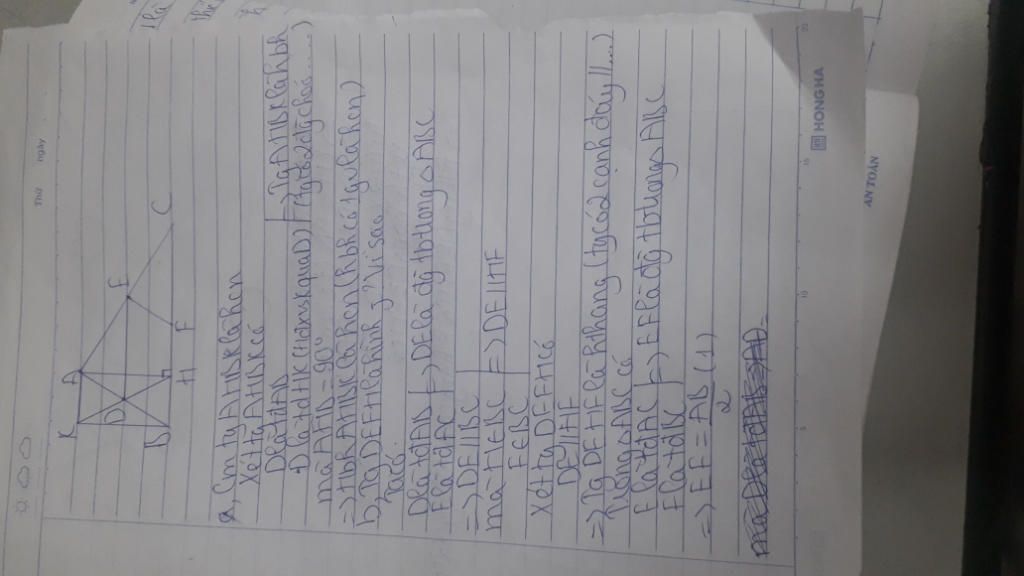 Thứ
ngày
K
A
D
E
B
H
F
C
a, Cm tg AHBK là hcn
Xét tg AHBK có
D là tđ AB
D là tđ HK (H đx K qua D)
=> Tg AHBK là hbh
(tg có 2 đg chéo ...)
mà AHB = 90°
=> Hbh AHBK là hcn (hbh có 1 gv là hcn)
b, Tg DEFH là hình j, Vì sao
Ta có
D là tđ AB
E là tđ AC
=> DE là đg tb trong △ ABC
=> DE // BC
mà H ∈ BC
F ∈ BC
=> DE // HF
Xét tg DEFH có
DE // HF
=> Tg DEHF là hthang (tg có 2 cạnh đáy // ...)
Trong △ ABC có
E là tđ AC
F là tđ BC
=> EF là đg tb trong △ ABC
=> EF = AB/2 (1)
HONG HA
AN TOÀN